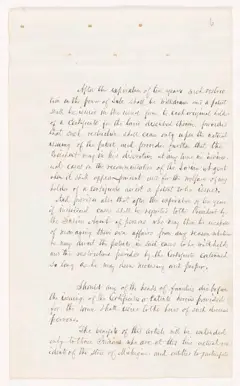 After the expiration of ten years such restric-
tion on the power of sale shall be withdrawn and a patent
shall be issued in the usual form to each original hold-
er of a Certificate for the land described therein provided
that such restriction shall cease only upon the actual
issuing of the patent and provided further that the
President may in his discretion at any time in individ-
ual cases on the recommendation of the Indian Agent
when it shall appear prudent and for the welfare of any
holder of a Certificate direct a patent to be issued.
And provided also that after the expiration of ten years
if individual cases shall be reported to the President by
the Indian Agent of persons who may then be incapable
of managing their own affairs from any reason whatever
he may direct the patents in such cases to be withheld,
and the restrictions provided by the Certificate continued
so long as he may deem necessary and proper.
Should any of the heads of families die before
the issuing of the Certificates or Patents herein provided
for the same shall issue to the heirs of such deceased
persons.
The benefits of this article will be extended
only to those Indians who are at this time actual res-
idents of the State of Michigan and entitled to participate